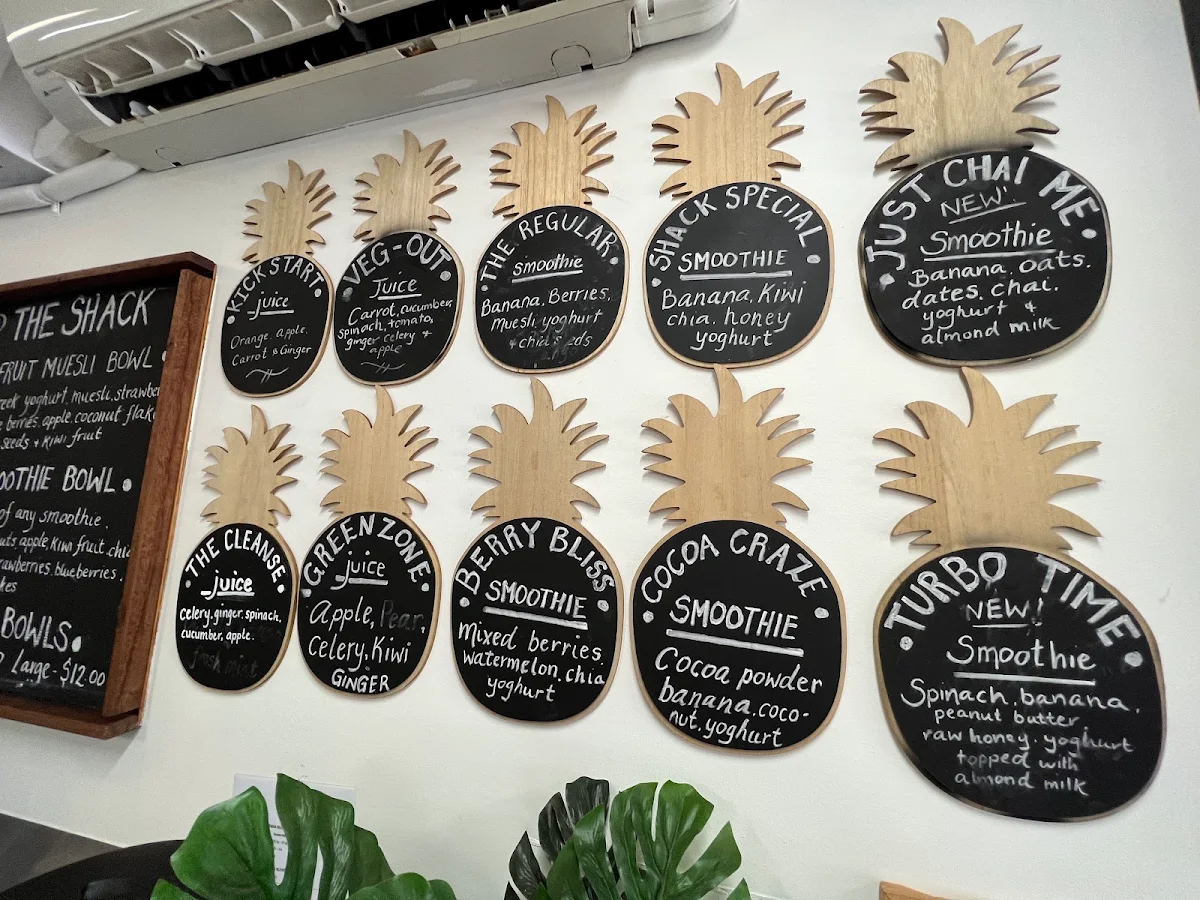 THE SHACK
FRUIT MUESLI BOWL
yoghurt, muesli, strawber
berries, apple, coconut flak
seeds + kiwi fruit
BOWL
of any smoothie.
apple, kiwi fruit, chia
blueberries.
BOWLS
Large - $12.00
KICK START
juice
Orange, apple,
Carrot & Ginger
VEG-OUT
Juice
Carrot, cucumber,
spinach, tomato,
ginger celery &
apple
THE REGULAR
smoothie
Banana, Berries,
Muesli, yoghurt
SHACK SPECIAL
SMOOTHIE
Banana, Kiwi
chia, honey
yoghurt
JUST CHAI ME
NEW!
Smoothie
Banana, oats,
dates, chai,
yoghurt &
almond milk
THE CLEANSE
juice
celery, ginger, spinach,
cucumber, apple.
fresh mint
GREEN ZONE
juice
Apple, Pear,
Celery, Kiwi
GINGER
BERRY BLISS
SMOOTHIE
Mixed berries
watermelon, chia
yoghurt
COCOA CRAZE
SMOOTHIE
Cocoa powder
banana, coco-
nut, yoghurt
TURBO TIME
NEW!
Smoothie
Spinach, banana,
peanut butter,
raw honey, yoghurt
topped with
almond milk